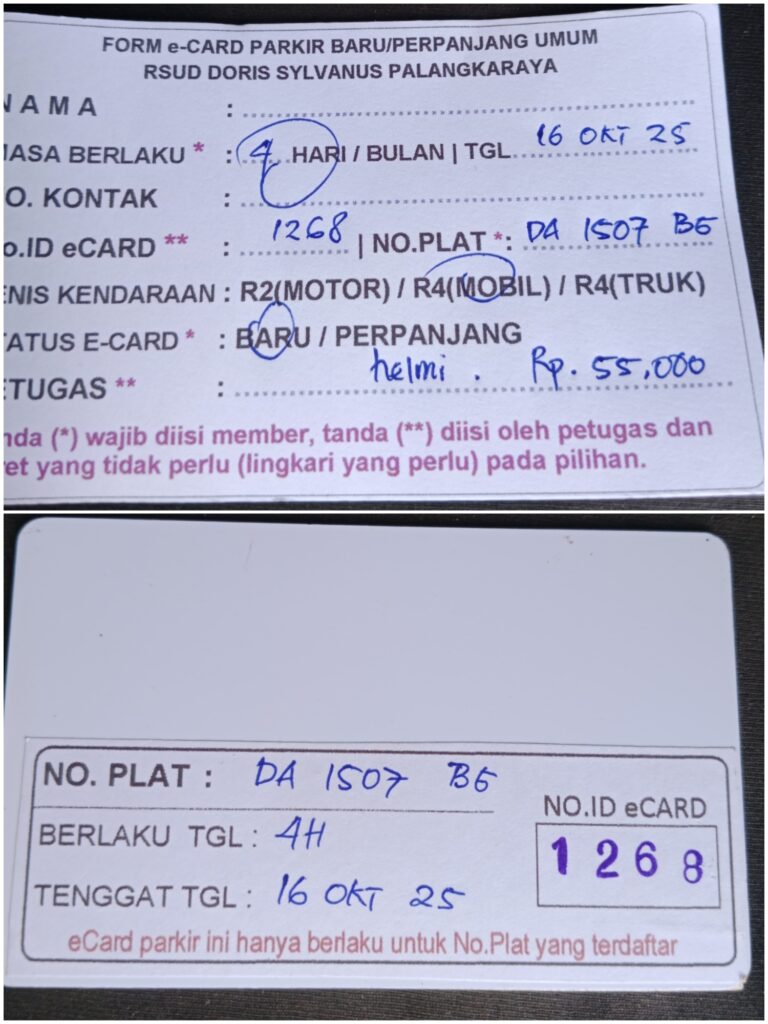 FORM e-CARD PARKIR BARU/PERPANJANG UMUM
RSUD DORIS SYLVANUS PALANGKARAYA
NAMA :
MASA BERLAKU * : 4 HARI / BULAN | TGL 16 OKT 25
NO. KONTAK :
No.ID eCARD ** : 1268 | NO.PLAT * : DA 1507 BE
JENIS KENDARAAN : R2(MOTOR) / R4(MOBIL) / R4(TRUK)
STATUS E-CARD * : BARU / PERPANJANG
PETUGAS ** : helmi . Rp. 55.000
nda (*) wajib diisi member, tanda (**) diisi oleh petugas dan
ret yang tidak perlu (lingkari yang perlu) pada pilihan.
NO. PLAT : DA 1507 BE
BERLAKU TGL : 4H
TENGGAT TGL : 16 OKT 25
NO.ID eCARD
1268
eCard parkir ini hanya berlaku untuk No.Plat yang terdaftar